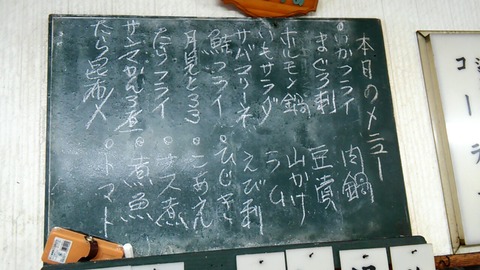 本日のメニュー
いかフライ 肉鍋
まぐろ刺 豆漬
ホルモン鍋 山かけ
いもサラダ
サバマリーネ えび刺
鮭フライ ひじき
月見とろろ こあえ
たらフライ ナス煮
サンマかんろ煮 煮魚
たら昆布〆 トマト
コーテ